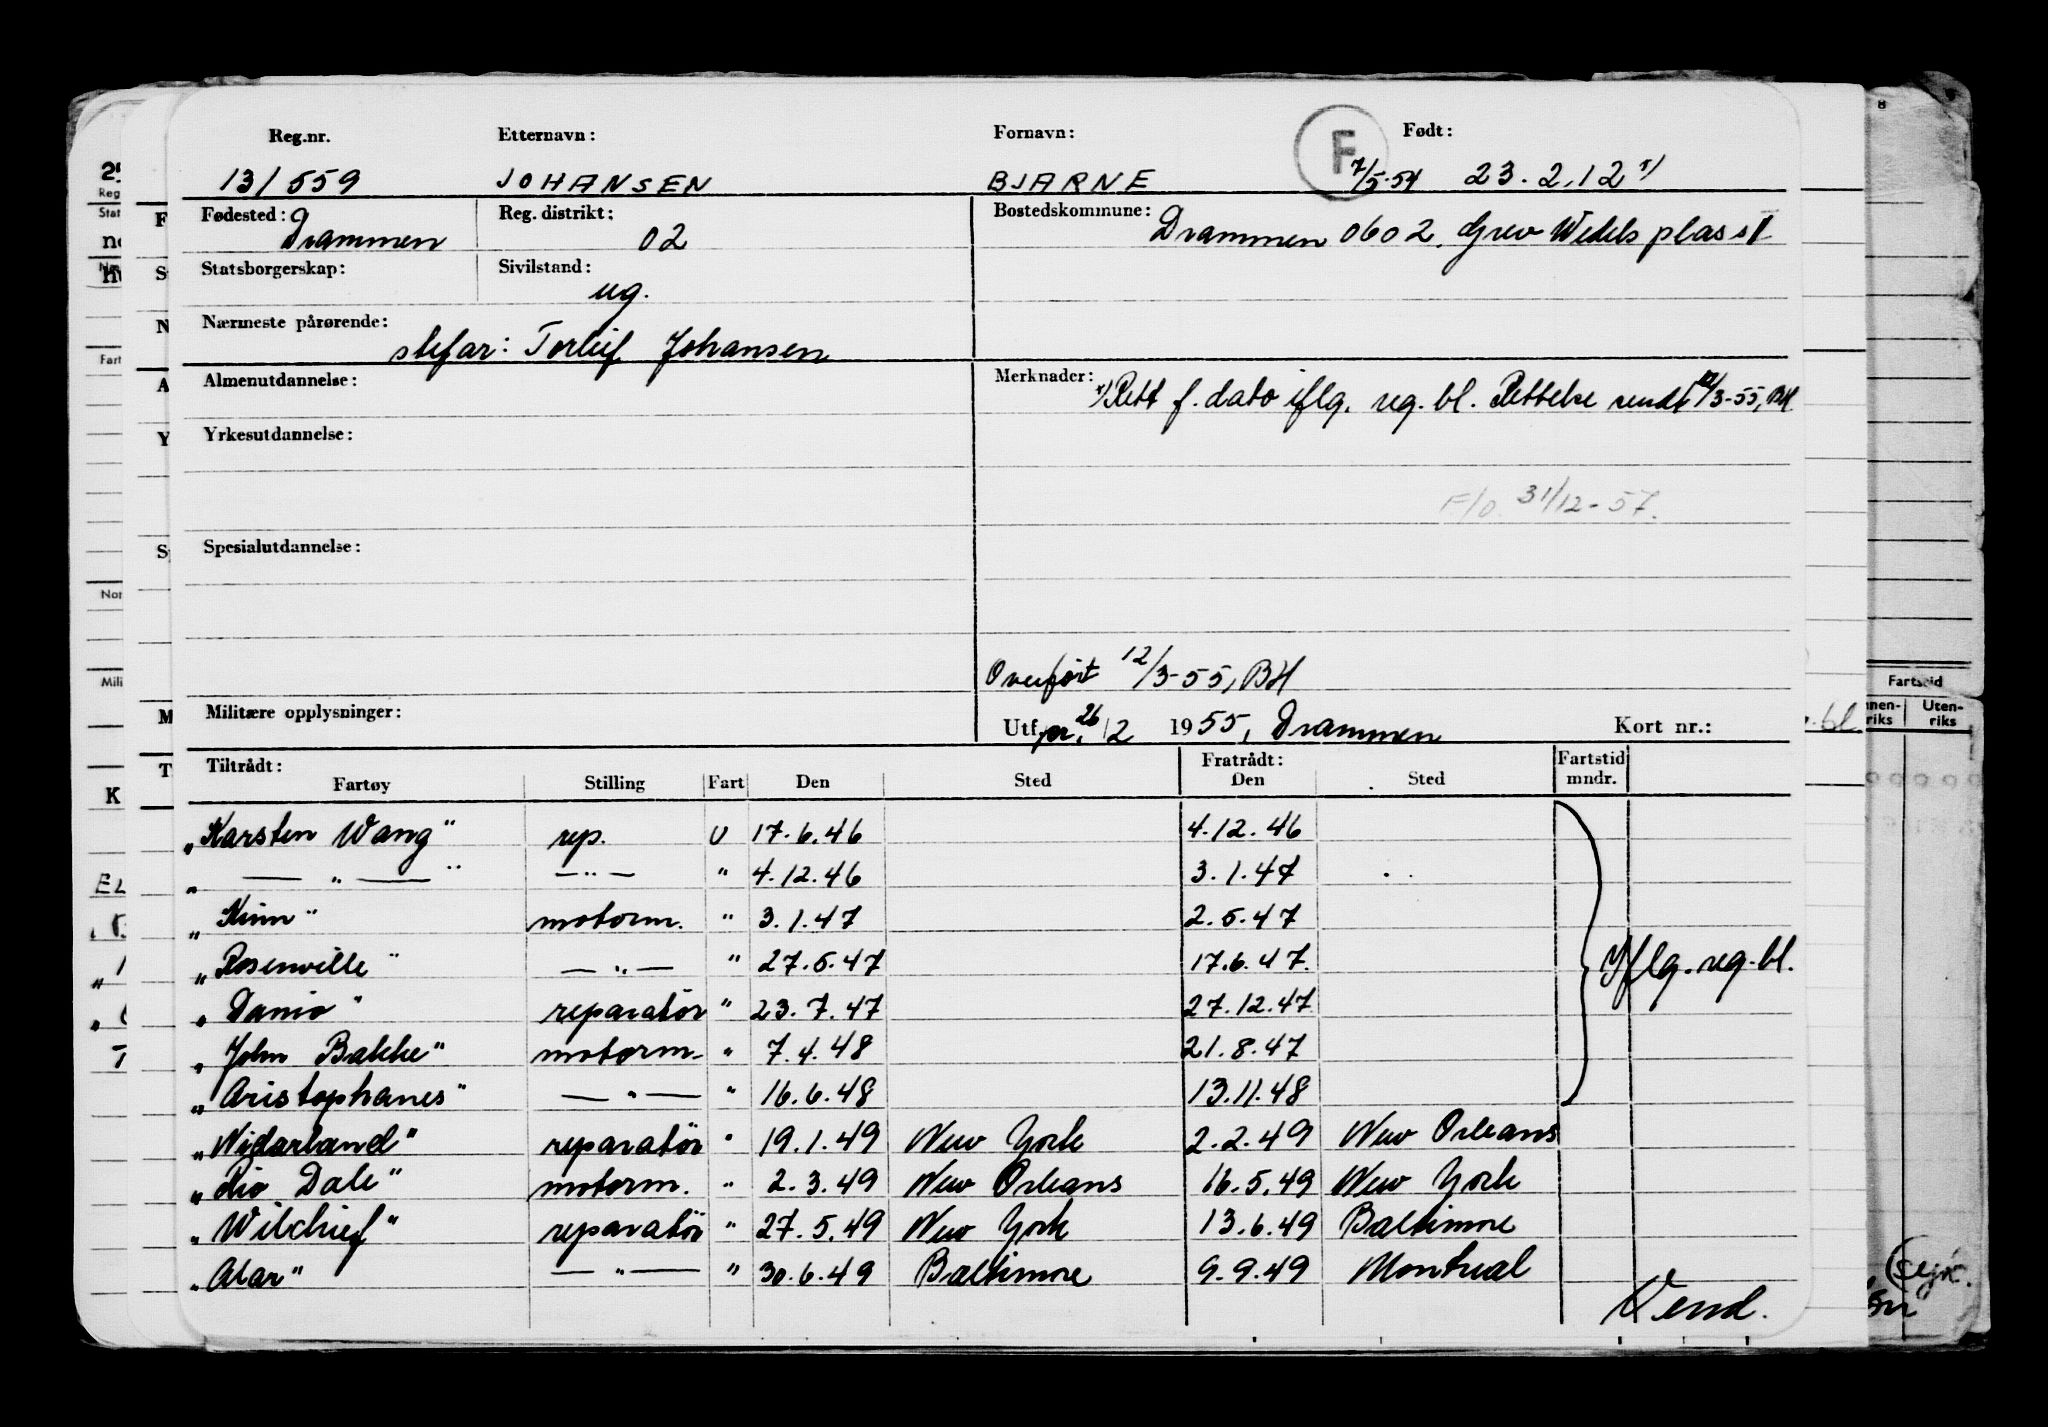 Reg.nr. Etternavn: Fornavn: F Født:
13/559 JOHANSEN BJARNE 7/5-54 23.2.12 x)
Fødested: Drammen Reg. distrikt: 02 Bostedskommune: Drammen 0602, Grev Wedels plass 1
Statsborgerskap: Sivilstand: ug.
Nærmeste pårørende: stefar: Torleif Johansen
Almenutdannelse: Merknader: x) Rett f. dato iflg. reg. bl. Rettelse sendt 12/3-55, BH
Yrkesutdannelse:
F/o 31/12-57.
Spesialutdannelse:
Overført 12/3-55, BH
Militære opplysninger: Utf. pr. 26/2 1955, Drammen Kort nr.:
Tiltrådt: Fratrådt: Fartstid
Fartøy Stilling Fart Den Sted Den Sted mndr.
"Karsten Wang" rep. U 17.6.46 4.12.46
" — " — " — " — " 4.12.46 3.1.47
"Kinn" motorm. " 3.1.47 2.5.47
"Rosenville" — " — " 27.5.47 17.6.47. Iflg. reg. bl.
"Danio" reparatør " 23.7.47 27.12.47
"John Bakke" motorm. " 7.4.48 21.8.47
"Aristophanes" — " — " 16.6.48 13.11.48
"Vidarland" reparatør " 19.1.49 New York 2.2.49 New Orleans
"Rio Dale" motorm. " 2.3.49 New Orleans 16.5.49 New York
"Wilchief" reparatør " 27.5.49 New York 13.6.49 Baltimore
"Alar" — " — " 30.6.49 Baltimore 9.9.49 Montreal
Vend.
8
Fartstid
Uten-
riks